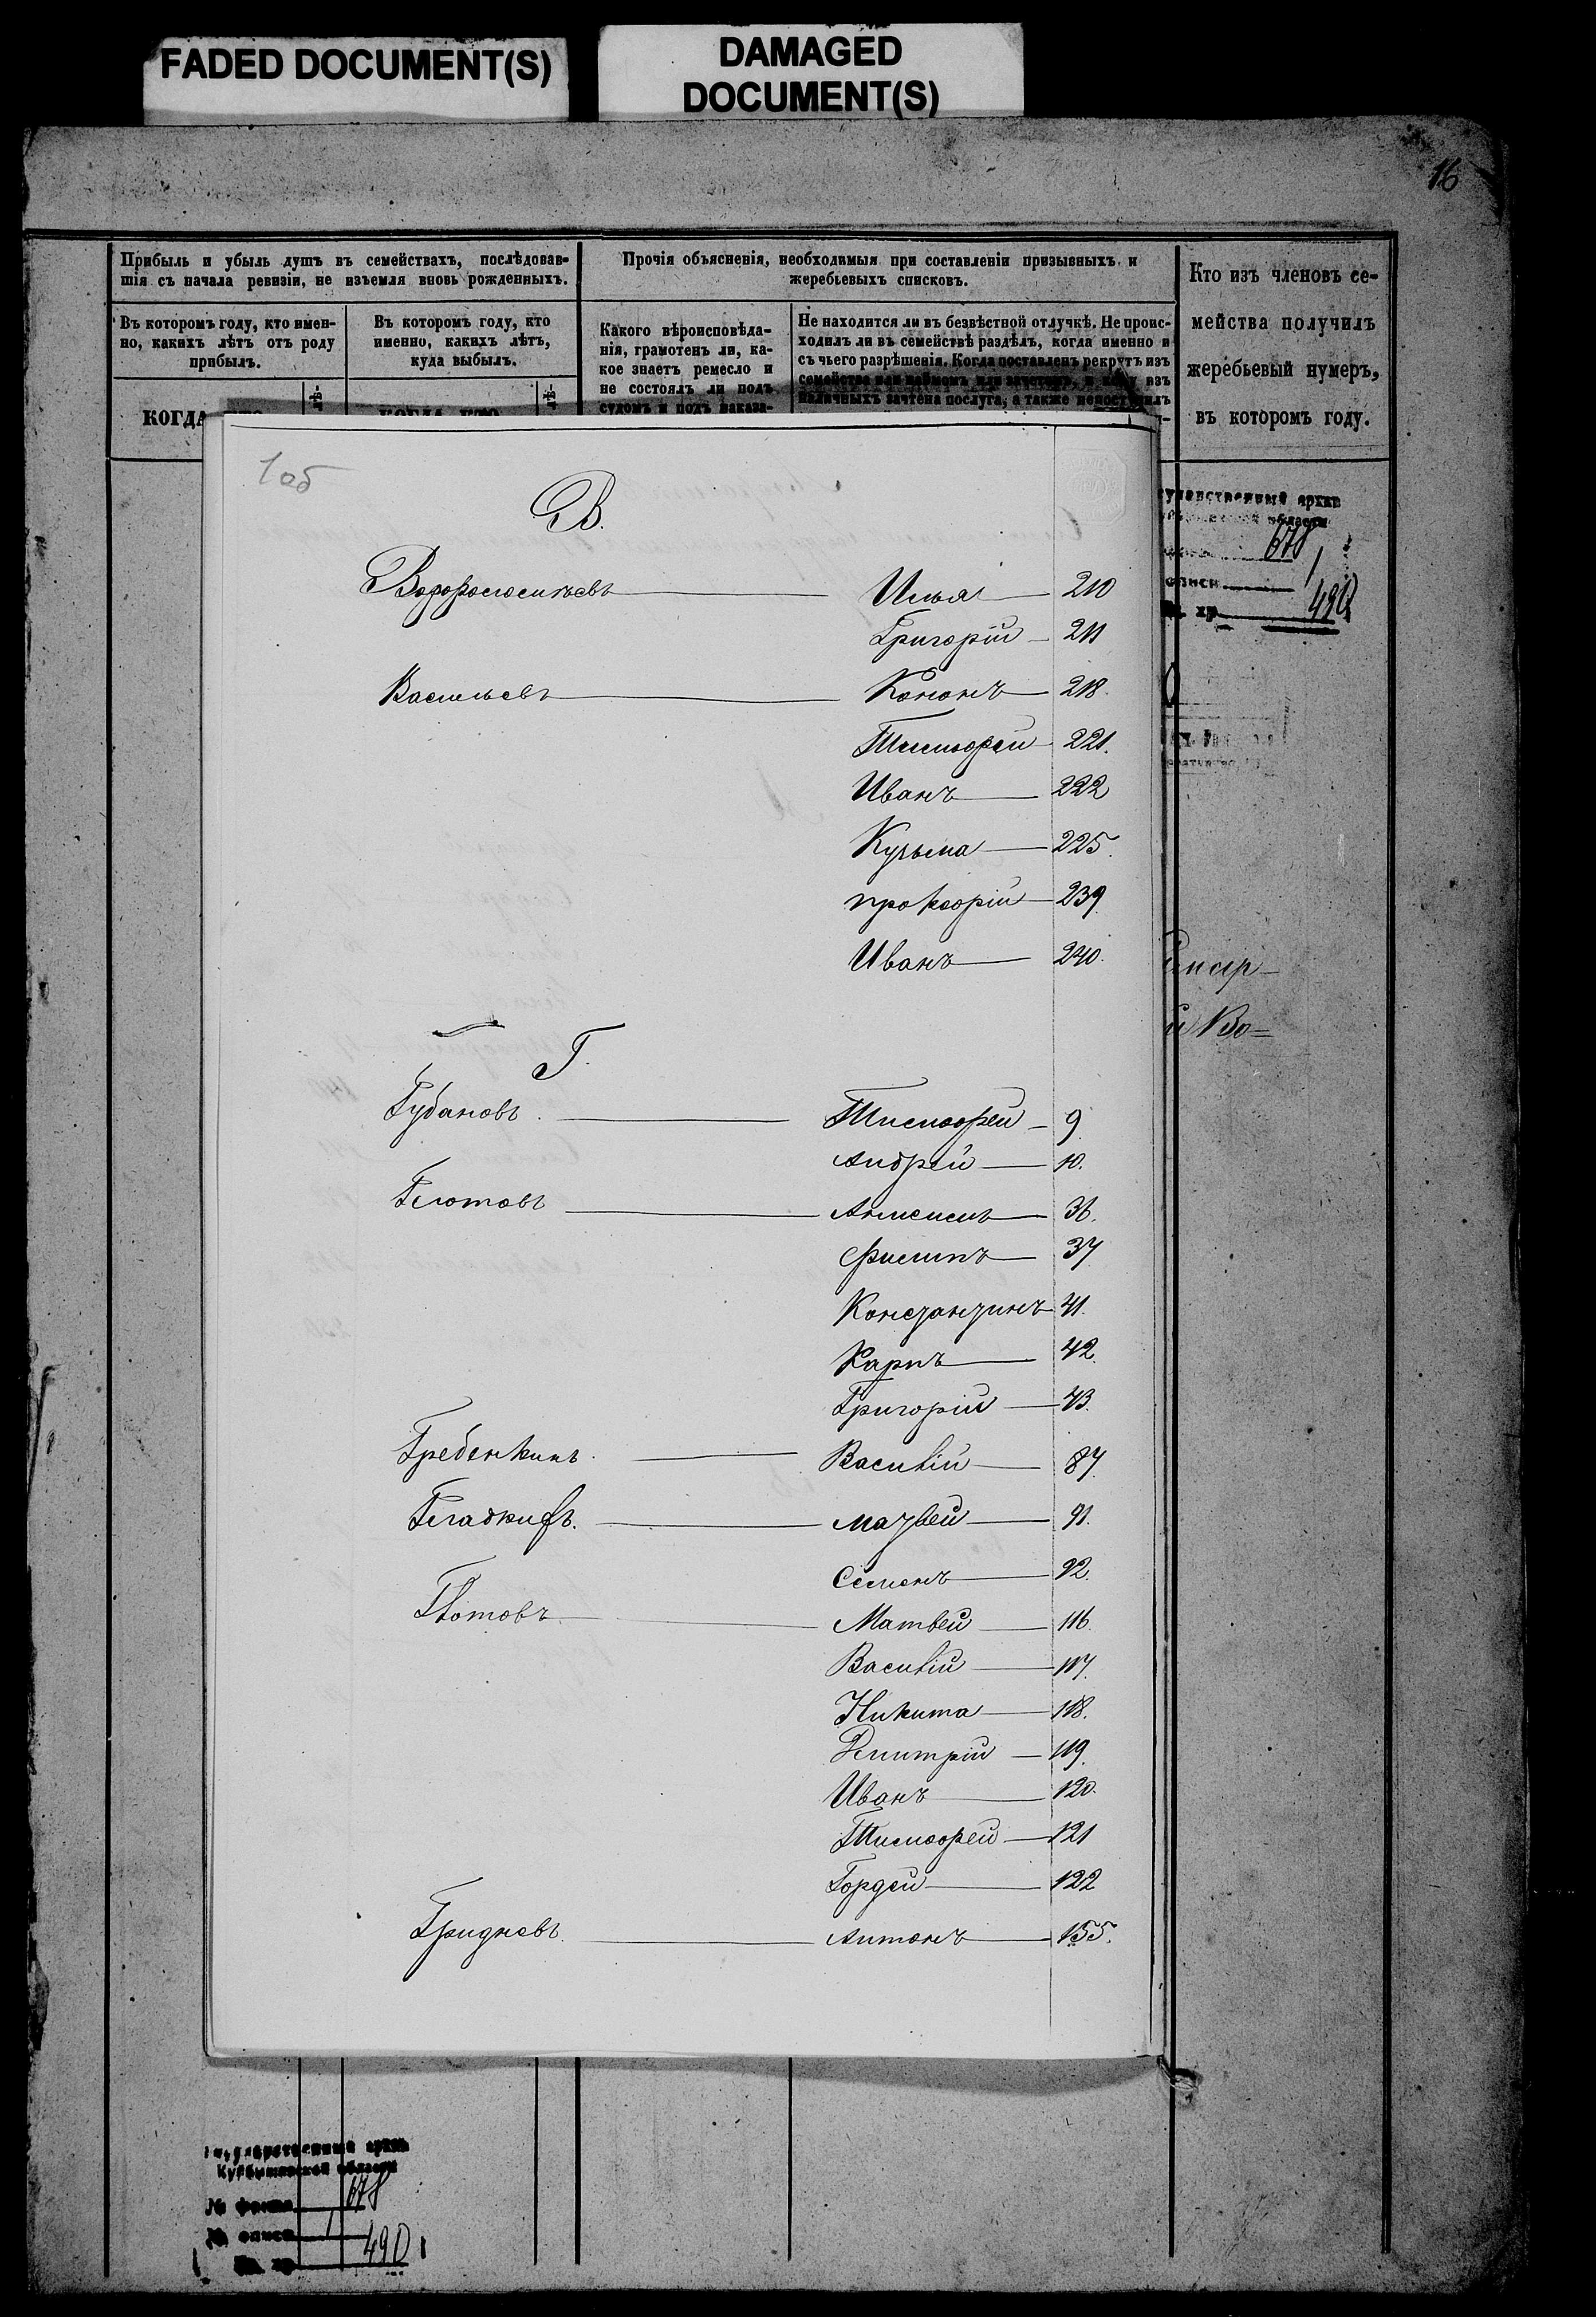 FADED DOCUMENT(S)
DAMAGED
DOCUMENT(S)
16
Прибыль и убыль душъ въ семействахъ, послѣдовав-
шія съ начала ревизіи, не изъемля вновь рожденныхъ.
Въ которомъ году, кто имен-
но, какихъ лѣтъ отъ роду
прибылъ.
Въ которомъ году, кто
именно, какихъ лѣтъ,
куда выбылъ.
КОГДА
Прочія объясненія, необходимыя при составленіи призывныхъ и
жеребьевыхъ списковъ.
Какого вѣроисповѣда-
нія, грамотенъ ли, ка-
кое знаетъ ремесло и
не состоялъ ли подъ
судомъ и подъ наказа-
Не находится ли въ безвѣстной отлучкѣ. Не проис-
ходилъ ли въ семействѣ раздѣлъ, когда именно и
съ чьего разрѣшенія. Когда поставленъ рекрутъ изъ
семейства или наймомъ или зачетомъ, и кому изъ
наличныхъ зачтена послуга, а также не поступилъ
Кто изъ членовъ се-
мейства получилъ
жеребьевый нумеръ,
въ которомъ году.
1об
В.
Илья 210
Григорій 211
Васильевъ Кононъ 218.
Тимофей 221.
Иванъ 222
Кузьма 225.
Прокофій 239
Иванъ 240.
Г.
Губановъ. Тимофей 9
Андрей 10.
Глотовъ 36.
Филипъ 37
Константинъ 41.
Карпъ 42.
Григорій 43.
Гребенкинъ. Василій 87.
Гладкихъ. Матвей 91.
Семенъ 92.
Глотовъ Матвей 116.
Василій 117.
Никита 118.
Дмитрій 119.
Иванъ 120.
Тимофей 121
Гордей 122
Гридневъ. Антонъ 155.
678
описи 1
хр. 490
и Во=
Государственный архив
Куйбышевской области
№ фонда 678
№ описи 1
хр. 490